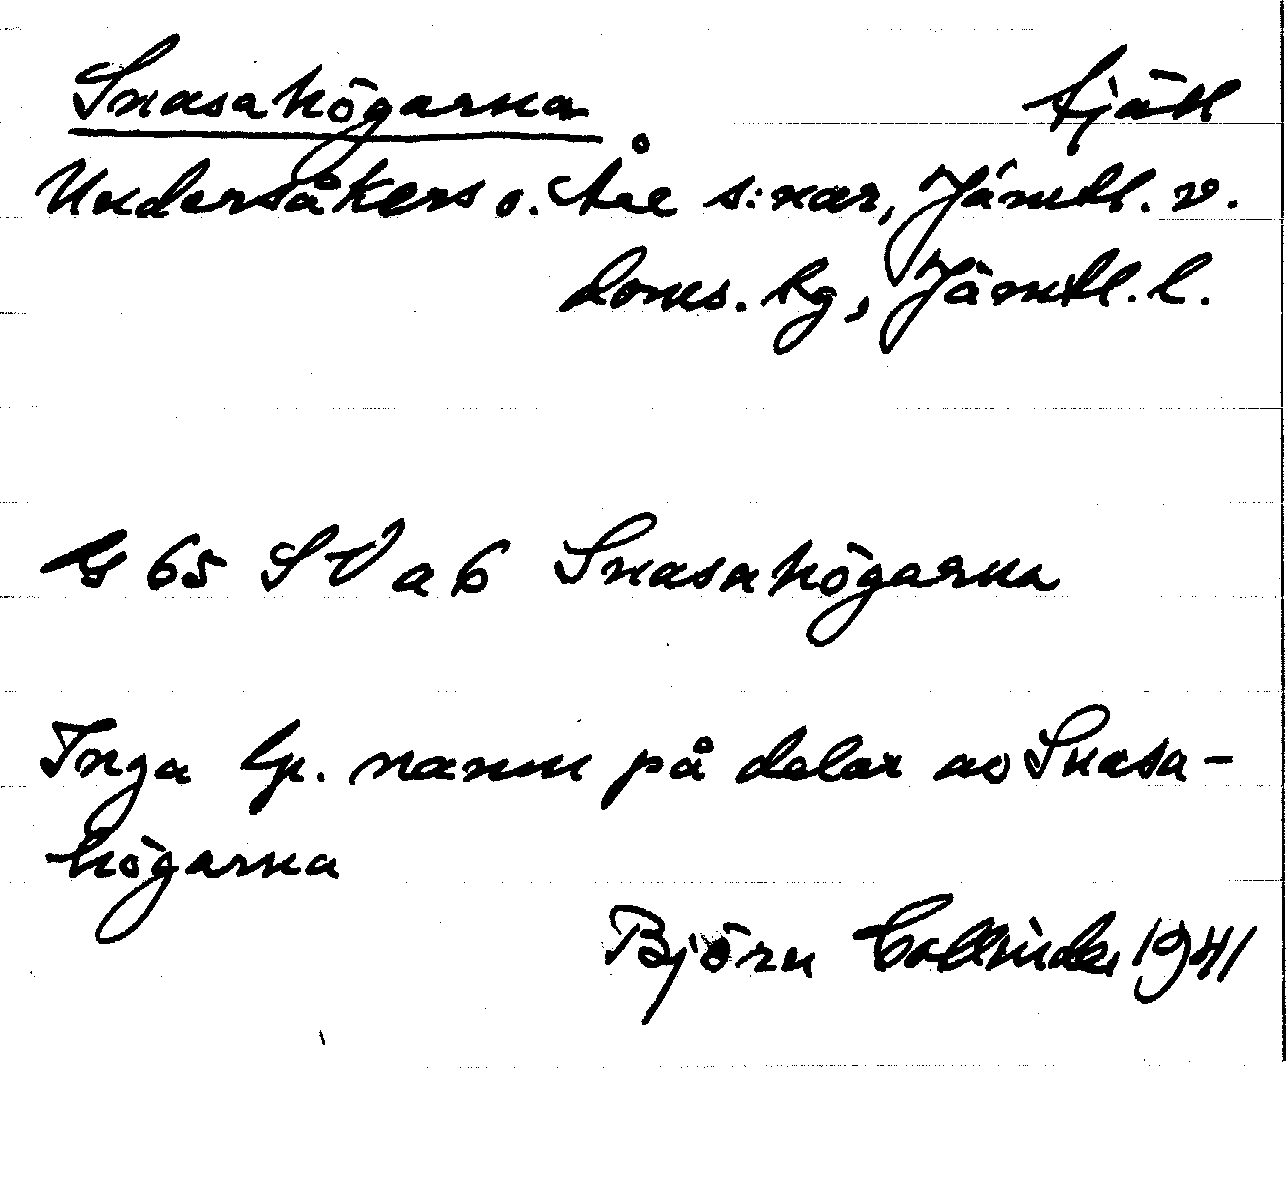 Snasahögarna fjäll
Undersåkers o. Åre s:nar, Jämtl. v.
doms. hg, Jämtl. l.
G 65 SV a 6 Snasahögarna
Inga lp. namn på delar av Snasa-
högarna
Björn Collinder 1941